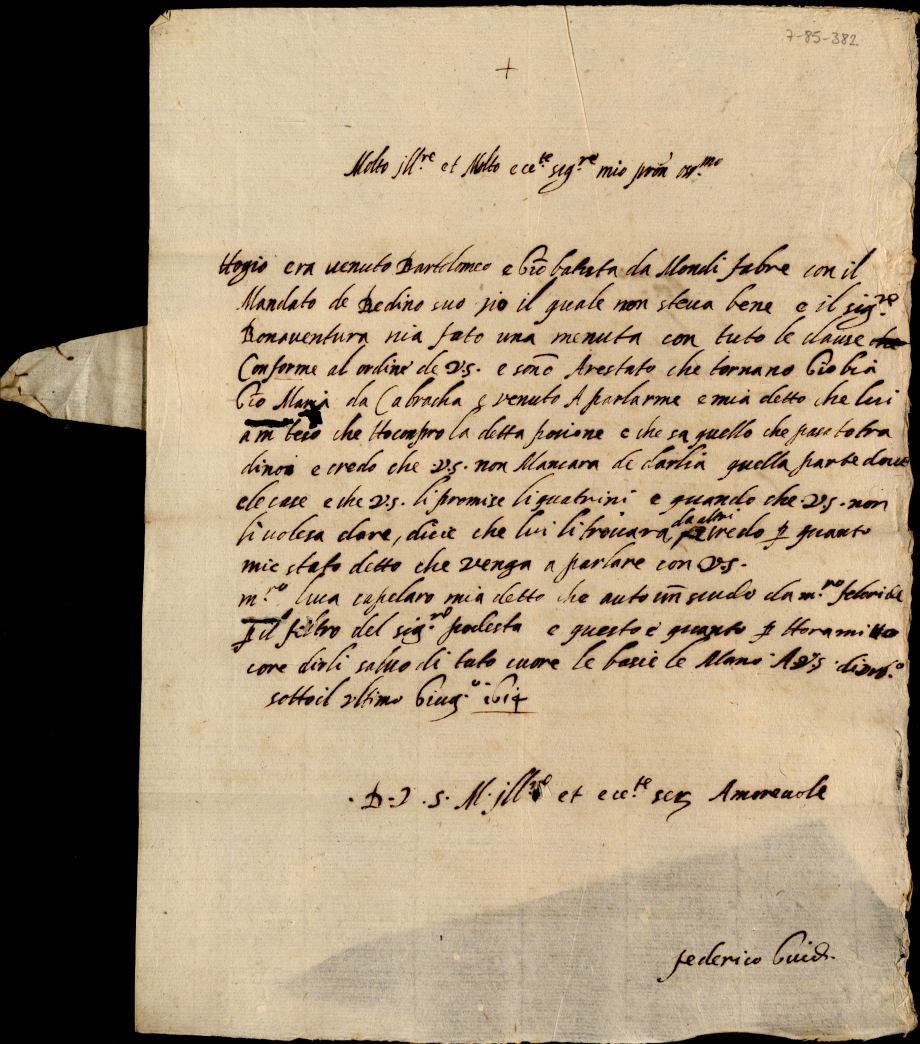 7-85-382
+
Molto jll.re et Molto ecc.te sig.re mio pron oss.mo
Hogio era venuto Bartolomeo e Gio batista da Mondi fabre con il
Mandato de Bedino suo zio il quale non steva bene e il sig.re
Bonaventura mia fato una menuta con tuto le clause che
Conforme al ordine de V.S. e sono Arestato che tornano
Gio Maria da Cabracha e venuto A parlarme e mia detto che lui
che Ho conpro la detta posione e che sa quello che pasa tra
di noi e credo che V.S. non Mancara de darlia quella parte dove
ele case e che V.S. li promise li quatrini e quando che V.S. non
li volesa dare, dicie che lui li trovara da altri credo p quanto
mie stato detto che venga a parlare con V.S.
m.ro luca capelaro mia detto che auto un scudo da m.ro
p il feltro del sig.re podesta e questo e quanto p Hora mi
core dirli saluo di tuto cuore le basie le Mano A V.S. di
sotto il ultimo Giug.o 1614
D. V. S. M. jll.re et ecc.te ser Amorevole
federico Guidi